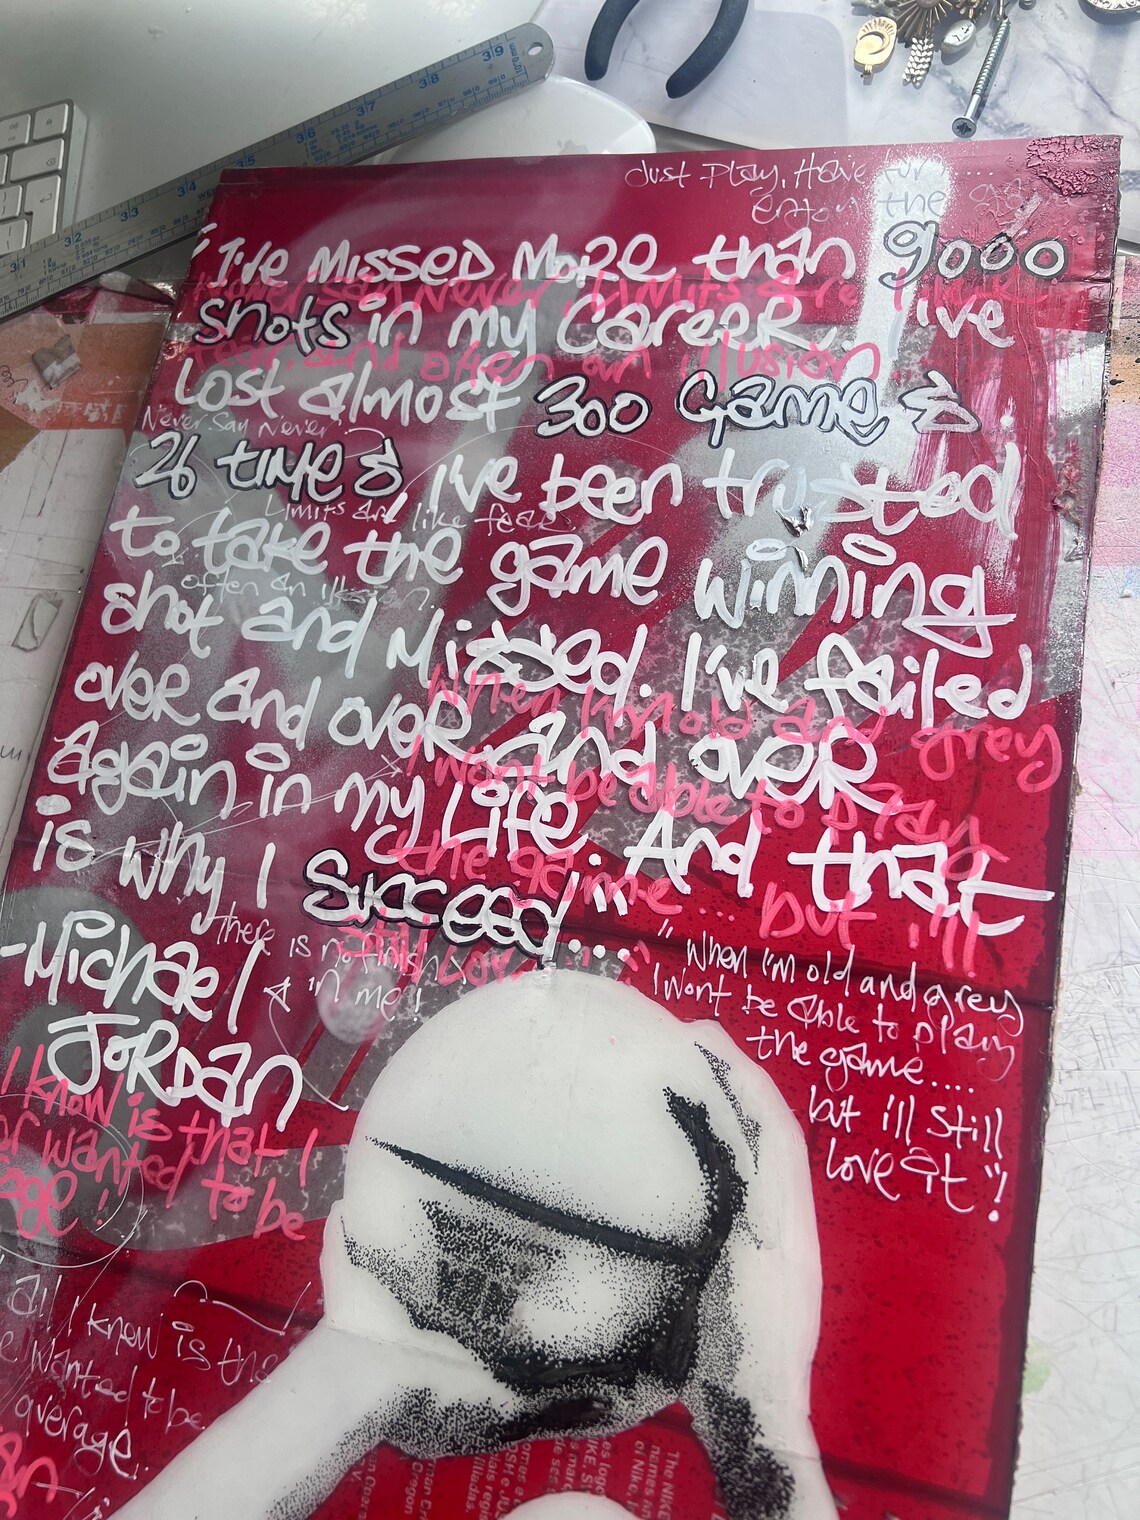 Just Play, Have fun ....
enjoy the game
"I've missed more than 9000
Never Say Never, Limits are like
shots in my career. I've
fear, and often an illusion.
Lost almost 300 games.
Never Say Never.
26 times, I've been trusted
Limits are like fear
to take the game winning
often an illusion.
shot and missed. I've failed
When I'm old and grey
over and over and over
I wont be able to play
Again in my Life. And that
the game... but i'll
is why I Succeed"...
still
there is no finish
in me!
-Michael
JORDAN
"When I'm old and grey
I wont be able to play
the game....
but ill still
love it"!
I know is that I
wanted to be
all I know is tha
wanted to be
average.
The NIKE
names in
of Nike, In